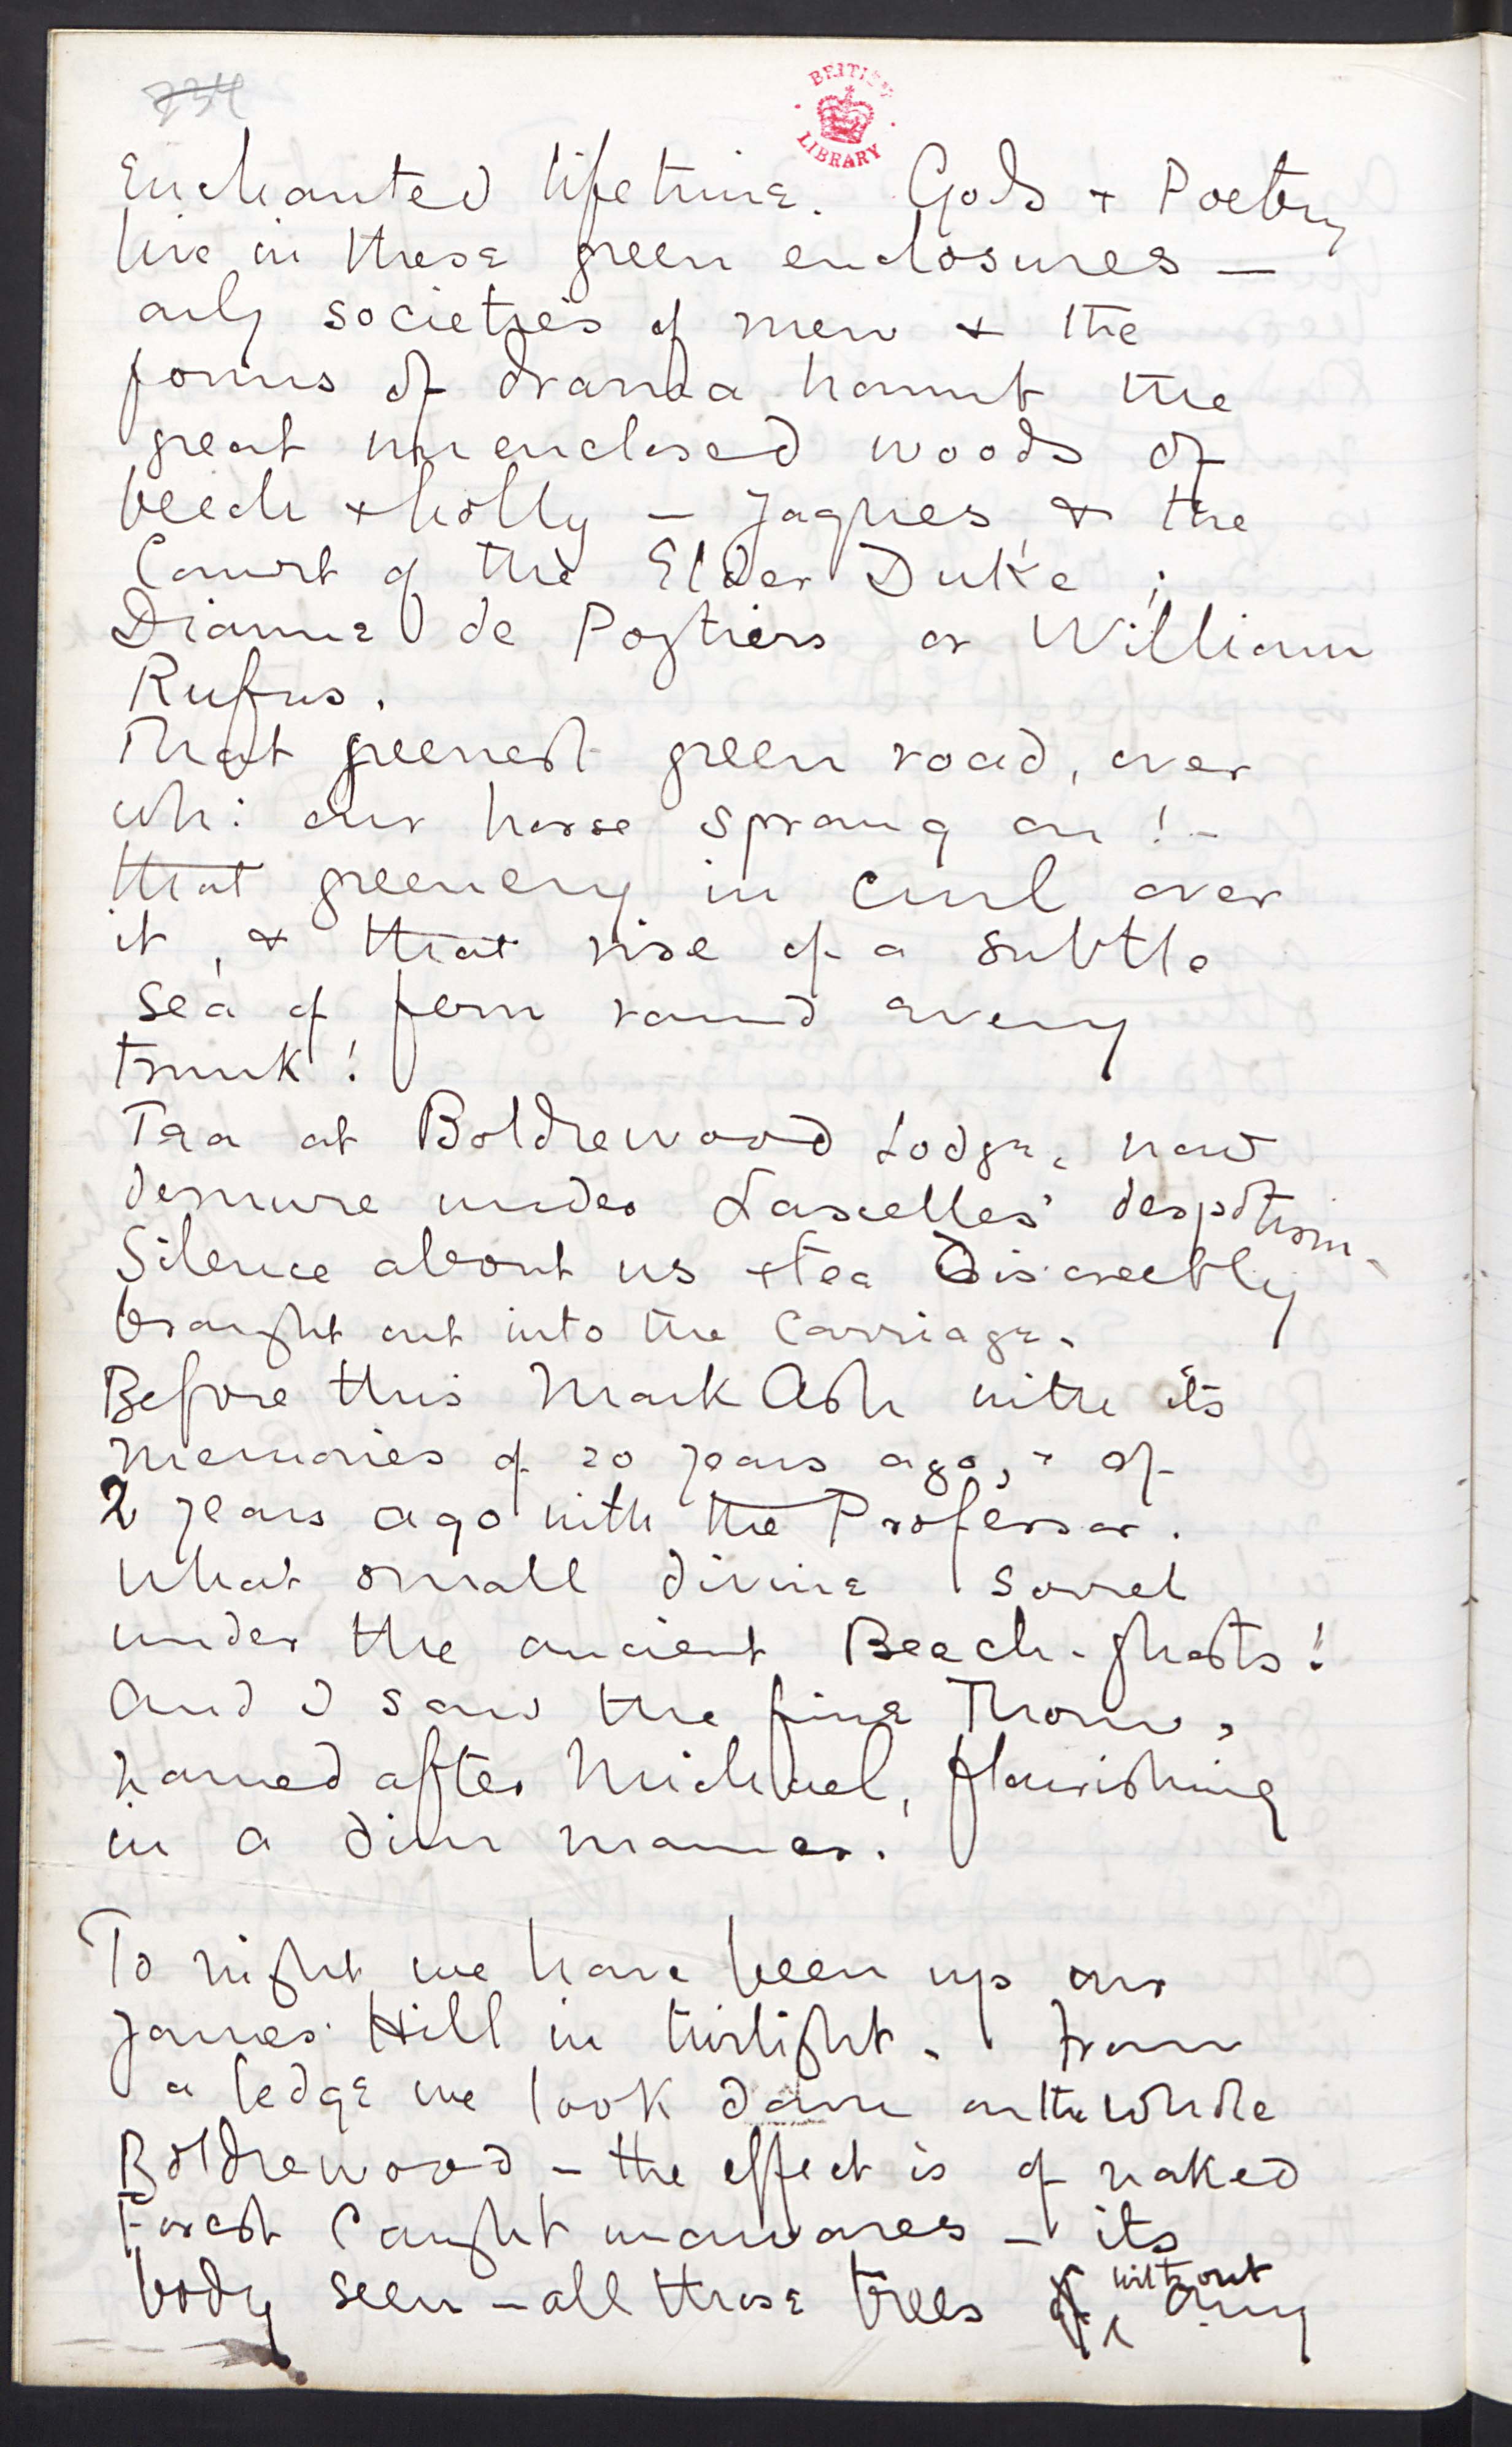 734
BRITISH
LIBRARY
Enchanted lifetime. Gods + Poetry
live in these green enclosures —
only societies of men & the
forms of drama haunt the
great unenclosed woods of
beech & holly — Jaques, & the
Court of the Elder Duke;
Dianne de Poytiers or William
Rufus.
That greenest green road, over
wh: our horse sprang on! -
that greenery in curl over
it, & that rise of a subtle
sea of fern round every
trunk!
Tea at Boldrewood Lodge, now
demure under Lascelles' despotism -
Silence about us & tea discreetly
brought out into the carriage.
Before this Mark Ash with its
memories of 20 years ago, & of
2 years ago with the Professor.
What small divine sorrel
under the ancient Beech-ghosts!
And I saw the fine Thorn,
named after Michael, flourishing
in a dim manner.
To night we have been up our
James' Hill in twilight. From
a ledge we look down on the whole
Boldrewood - the effect is of naked
Forest caught unawares - its
body seen - all those trees without any